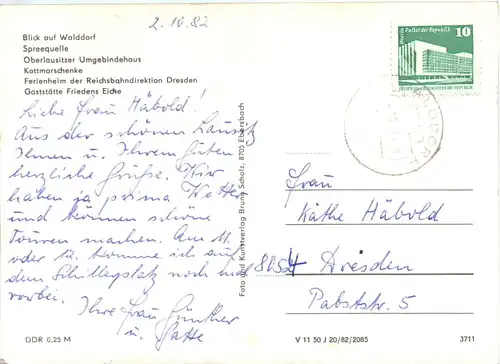 2.10.82
Blick auf Walddorf
Spreequelle
Oberlausitzer Umgebindehaus
Kottmarschenke
Ferienheim der Reichsbahndirektion Dresden
Gaststätte Friedens Eiche
Liebe Frau Häbold!
Aus der schönen Lausitz
Ihnen u. Ihrem Guten
herzliche Grüße. Wir
haben ja prima Wetter
und können schöne
Touren machen. Am 11.
oder 12. komme ich auf
dem Schillerplatz noch mal
vorbei.
Ihre Frau Günther
u. Gatte
DDR 0,25 M
Foto und Kunstverlag Bruno Scholz, 8705 Ebersbach
Berlin Palast der Republik
10
Frau
Käthe Häbold
8054 Dresden
Pabststr. 5
V 11 50 J 20/82/2085
3711